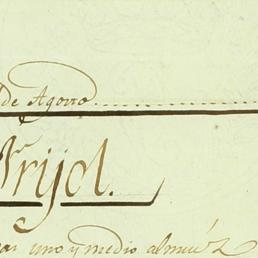 de Agosto
Frijol.
uno y medio almudz